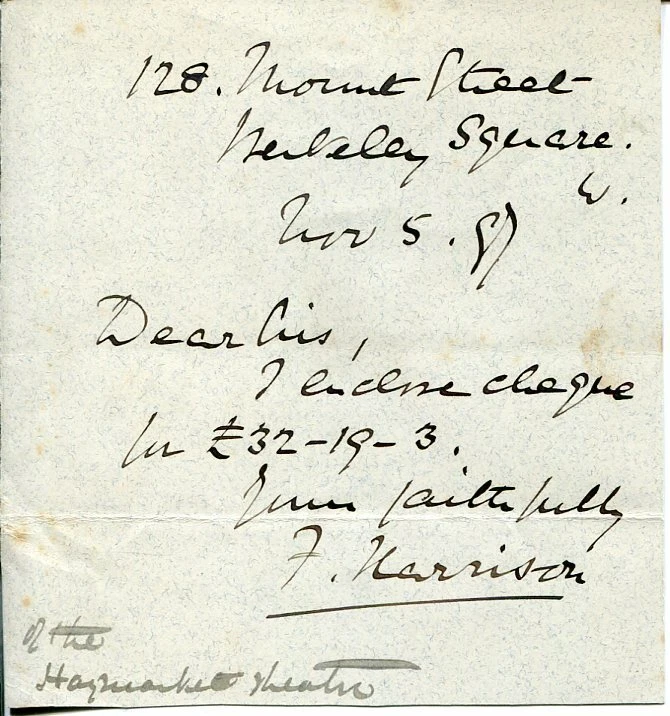 128. Mount Street
Berkeley Square.
W.
Nov 5. 97
Dear Sir,
I enclose cheque
for £32-19-3.
Yours faithfully
F. Harrison
of the
Haymarket Theatre